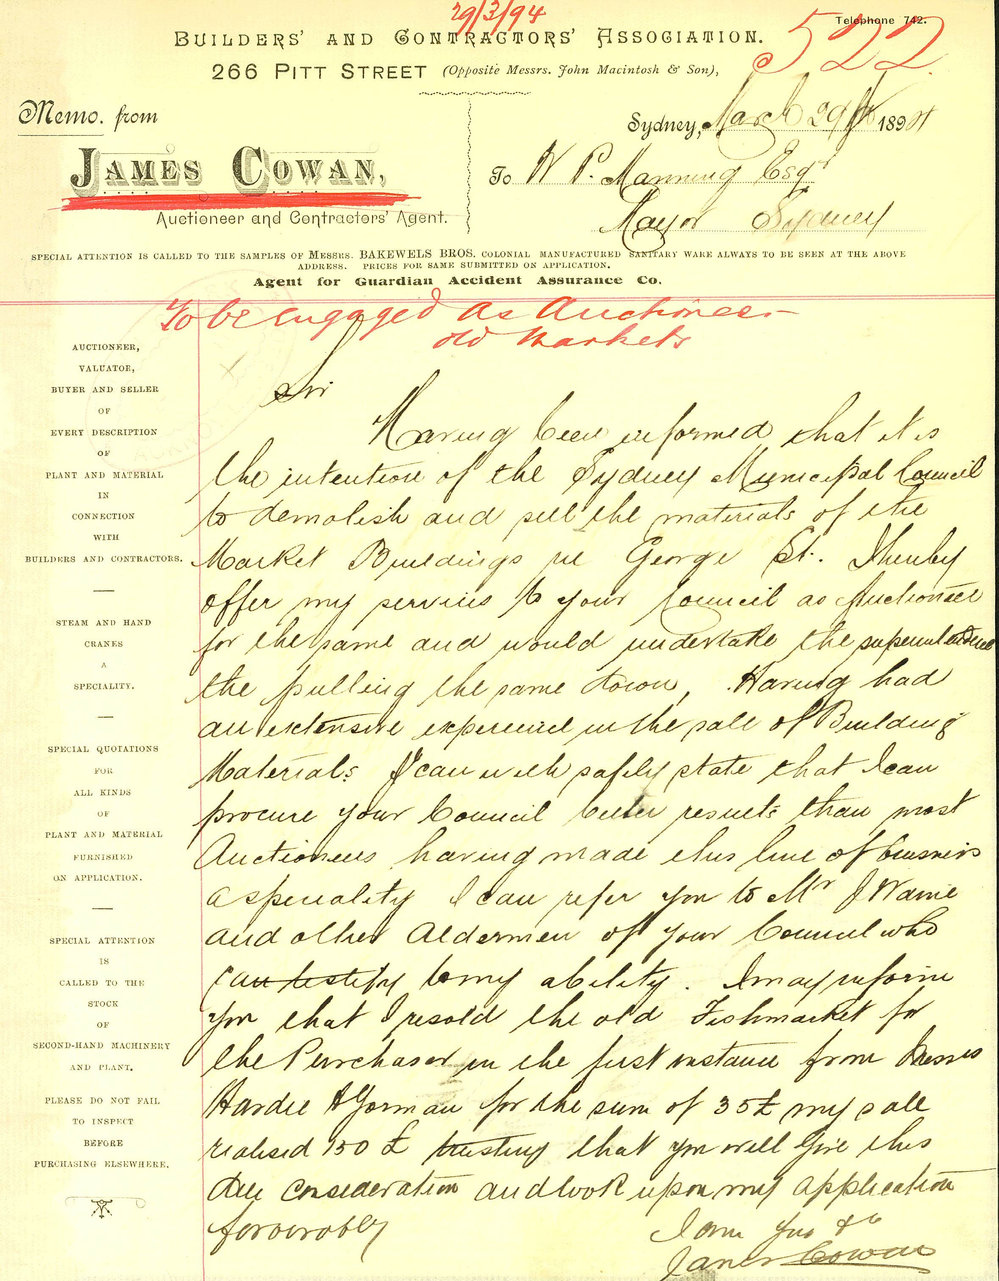 29/3/94
Telephone 742.
522
BUILDERS' AND CONTRACTORS' ASSOCIATION.
266 PITT STREET (Opposite Messrs. John Macintosh & Son),
Memo. from
Sydney, March 29th 1894
JAMES COWAN,
Auctioneer and Contractors' Agent.
To W P. Manning Esqr
Mayor Sydney
SPECIAL ATTENTION IS CALLED TO THE SAMPLES OF MESSRS. BAKEWELS BROS. COLONIAL MANUFACTURED SANITARY WARE ALWAYS TO BE SEEN AT THE ABOVE
ADDRESS. PRICES FOR SAME SUBMITTED ON APPLICATION.
Agent for Guardian Accident Assurance Co.
To be engaged as Auctioneer
Old Markets
AUCTIONEER,
VALUATOR,
BUYER AND SELLER
OF
EVERY DESCRIPTION
OF
PLANT AND MATERIAL
IN
CONNECTION
WITH
BUILDERS AND CONTRACTORS.
STEAM AND HAND
CRANES
A
SPECIALITY.
SPECIAL QUOTATIONS
FOR
ALL KINDS
OF
PLANT AND MATERIAL
FURNISHED
ON APPLICATION.
SPECIAL ATTENTION
IS
CALLED TO THE
STOCK
OF
SECOND-HAND MACHINERY
AND PLANT.
PLEASE DO NOT FAIL
TO INSPECT
BEFORE
PURCHASING ELSEWHERE.
Sir
Having been informed that it is
the intention of the Sydney Municipal Council
to demolish and sell the materials of the
Market Buildings in George St. I hereby
offer my services to your Council as Auctioneer
for the same and would undertake the superintendence
the pulling the same down, Having had
an extensive experience in the sale of Building
Materials I can with safety state that I can
procure your Council better results than most
Auctioneers having made this line of business
a speciality I can refer you to Mr J Warne
and other Aldermen of your Council who
can testify to my ability. I may inform
you that I resold the old Fishmarket for
the Purchaser in the first instance from Messrs
Hardie & Gorman for the sum of 35£ my sale
realised 150£ trusting that you will give this
due consideration and look upon my application
favorably
I am Yrs &c
James Cowan